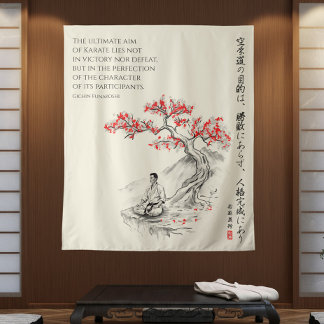 The ultimate aim
of Karate lies not
in victory nor defeat,
but in the perfection
of the character
of its participants.
Gichin Funakoshi
空手道の目的は、勝敗にあらず、人格完成にあり